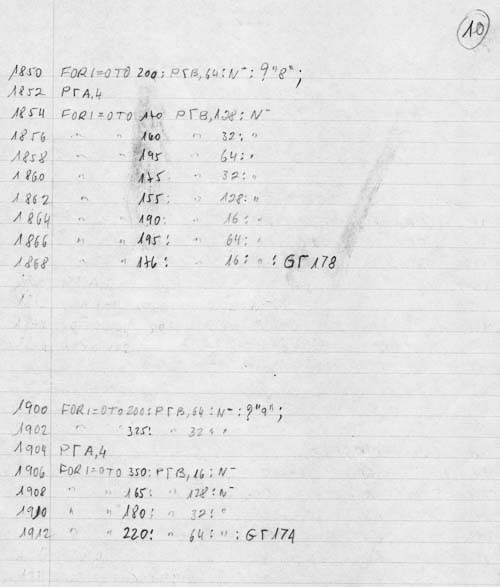 10
1850 FORI=0TO 200: PΓB,64:N⁻: ?"8";
1852 PΓA,4
1854 FORI=0TO 170 PΓB,128:N⁻
1856 " " 160 " 32: "
1858 " " 195 " 64: "
1860 " " 175 " 32: "
1862 " " 155: " 128: "
1864 " " 190: " 16: "
1866 " " 195: " 64: "
1868 " " 176: " 16: " : GΓ178
1900 FORI=0TO200:PΓB,64:N⁻:?"9";
1902 " " 325: " 32: "
1904 PΓA,4
1906 FORI=0TO 350:PΓB,16:N⁻
1908 " " 165: " 128:N⁻
1910 " " 180: " 32: "
1912 " " 220: " 64: " : GΓ174